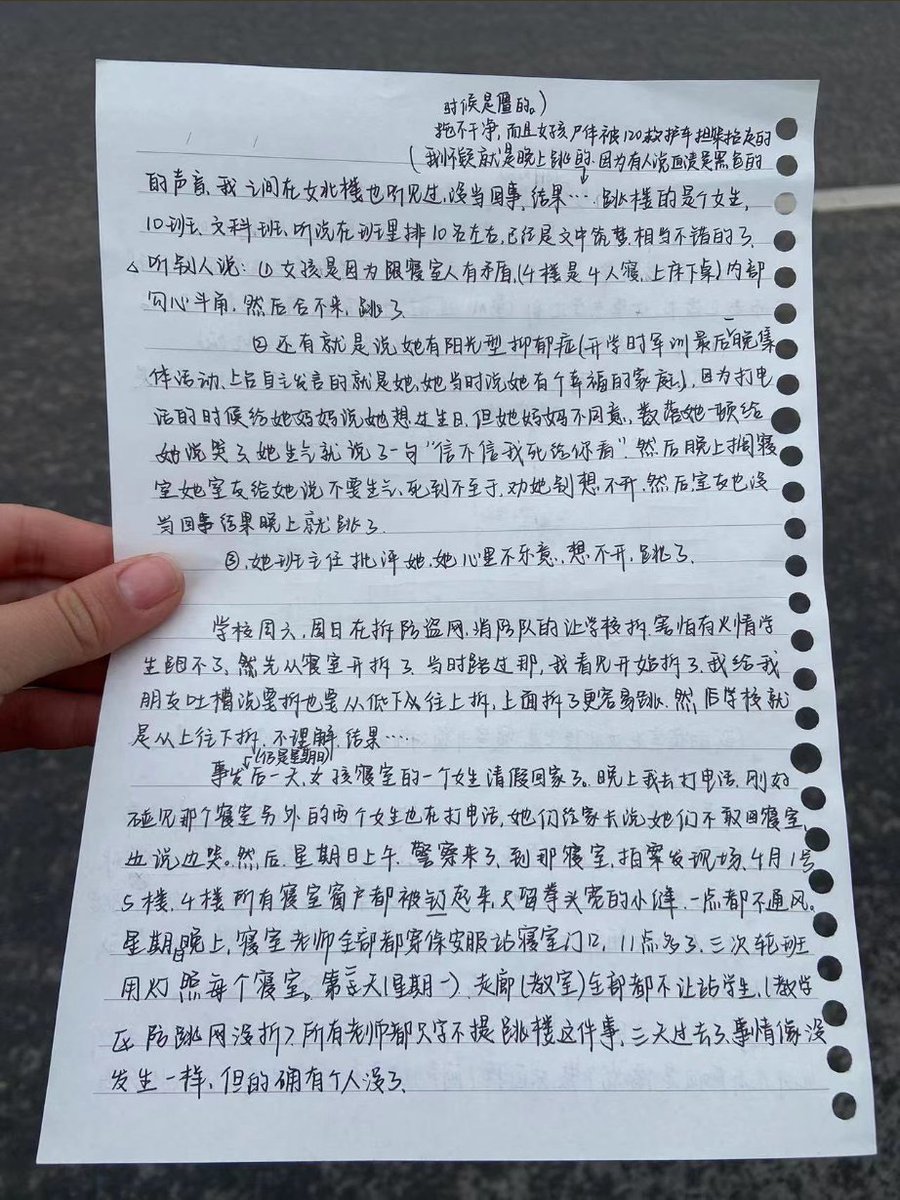 时候是僵的。)
拖不干净,而且女孩尸体被120救护车担架抬走的
(我怀疑就是晚上跳的,因为有人说血渍是黑色的
的声音,我之间在女北楼也听见过,没当回事,结果… 跳楼的是个女生,
10班、文科班,听说在班里排10名左右,已经是文中筑梦,相当不错的了、
△听别人说:① 女孩是因为跟寝室人有矛盾,(4楼是4人寝,上床下桌)内部
勾心斗角,然后合不来,跳了、
② 还有就是说她有阳光型抑郁症(开学时军训最后一晚集
体活动、上台自主发言的就是她,她当时说她有个幸福的家庭、),因为打电
话的时候给她妈妈说她想过生日,但她妈妈不同意,数落她一顿给
她说哭了,她生气就说了一句“信不信我死给你看”.然后晚上搁寝
室她室友给她说不要生气、死到不至于,劝她别想不开,然后室友也没
当回事结果晚上就跳了.
③、她班主任批评她,她心里不乐意,想不开,跳了、
学校周六、周日在拆防盗网、消防队的让学校拆、害怕有火情学
生跑不了,然先从寝室开拆了、当时路过那,我看见开始拆了、我给我
朋友吐槽说要拆也要从低下从往上拆,上面拆了更容易跳、然后学校就
是从上往下拆、不理解,结果……
(仍是星期日)
事发后一天,女孩寝室的一个女生请假回家了。晚上我去打电话,刚好
碰见那个寝室另外的两个女生也在打电话,她们给家长说她们不敢回寝室,
边说边哭。然后,星期日上午、警察来了、到那寝室,拍案发现场、4月1号
5楼、4楼所有寝室窗户都被钉起来,只留拳头宽的小缝、一点都不通风。
星期日晚上,寝室老师全部都穿保安服站寝室门口,11点多了、三次轮班
用灯照每个寝室。第三天(星期一)、走廊(教室)全部都不让站学生、(教学
区防跳网没拆)所有老师都只字不提跳楼这件事、三天过去了,事情像没
发生一样、但的确有个人没了、